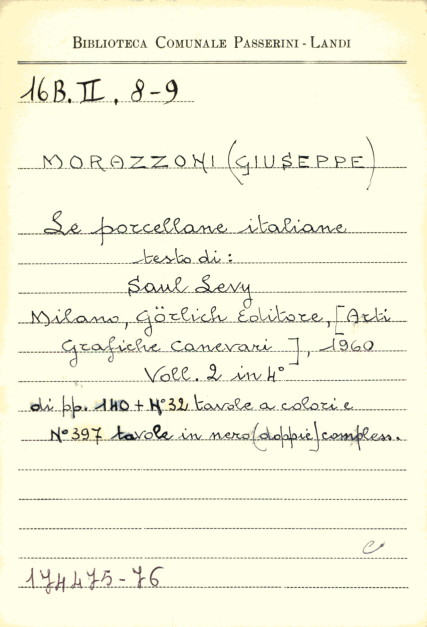 BIBLIOTECA COMUNALE PASSERINI - LANDI
16B. II. 8-9
MORAZZONI (GIUSEPPE)
Le porcellane italiane
testo di:
Saul Levy
Milano, Görlich Editore, [Arti
Grafiche Canevari ], 1960
Voll. 2 in 4°
di pp. 140 + N° 32 tavole a colori e
N° 397 tavole in nero (doppie) compless.
174475-76